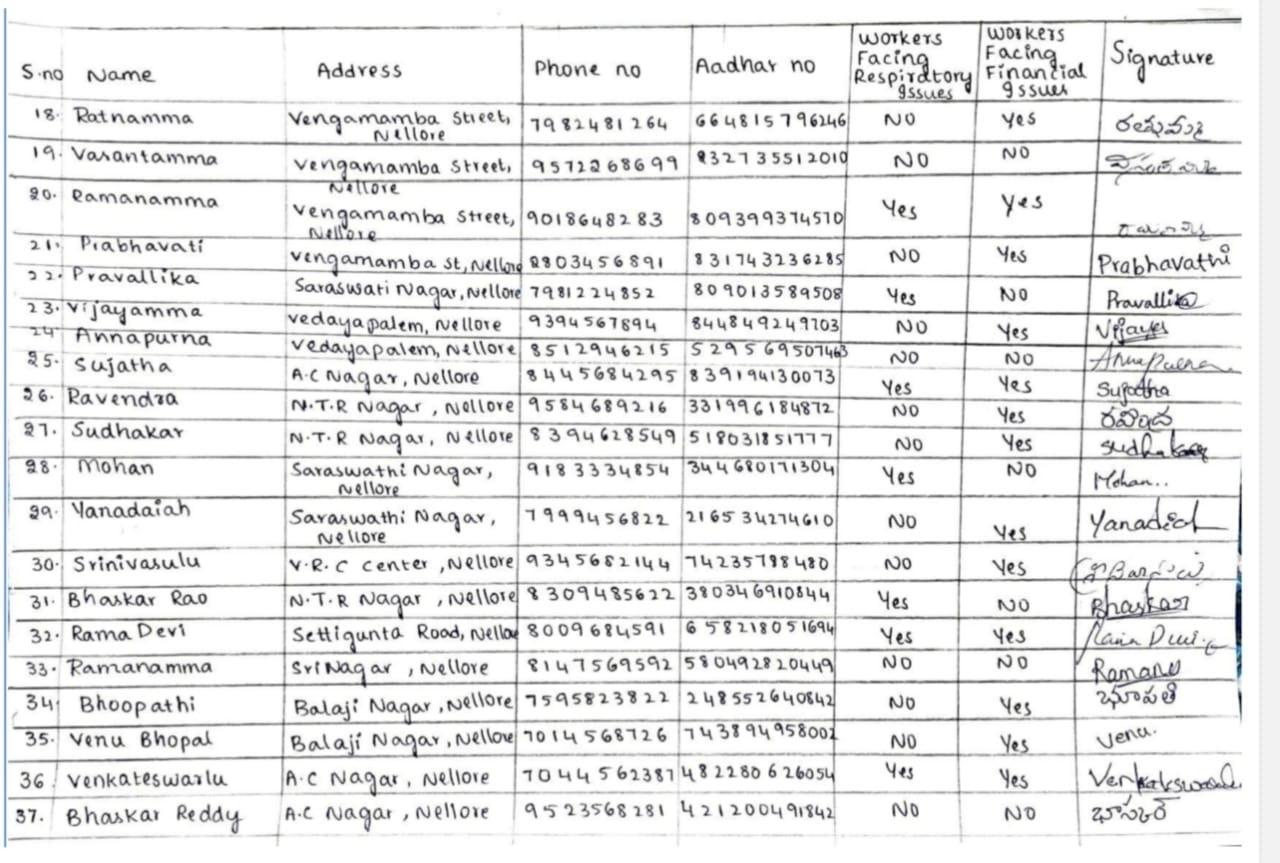 S.no Name Address Phone no Aadhar no Workers Facing Respiratory Issues Workers Facing Financial Issues Signature
18. Ratnamma Vengamamba Street, Nellore 7982481264 664815796246 NO Yes
19. Vasantamma Vengamamba Street, Nellore 9572268699 832735512010 NO NO
20. Ramanamma Vengamamba Street, Nellore 9018648283 809399374570 Yes Yes
21. Prabhavati Vengamamba st, Nellore 8803456891 831743236285 NO Yes Prabhavathi
22. Pravallika Saraswati Nagar, Nellore 7981224852 809013589508 Yes NO Pravallika
23. Vijayamma Vedayapalem, Nellore 9394567894 844849249703 NO Yes
24. Annapurna Vedayapalem, Nellore 8512946215 529569507463 NO NO
25. Sujatha A.C Nagar, Nellore 8445684295 839194130073 Yes Yes Sujatha
26. Ravendra N.T.R Nagar, Nellore 9584689216 331996184872 NO Yes
27. Sudhakar N.T.R Nagar, Nellore 8394628549 518031851777 NO Yes
28. Mohan Saraswathi Nagar, Nellore 9183334854 344680171304 Yes NO Mohan..
29. Yanadaiah Saraswathi Nagar, Nellore 7999456822 216534274610 NO Yes
30. Srinivasulu V.R.C Center, Nellore 9345682144 74235798480 NO Yes
31. Bhaskar Rao N.T.R Nagar, Nellore 8309485622 380346910844 Yes NO Bhaskar
32. Rama Devi Settigunta Road, Nellore 8009684591 658218051694 Yes Yes
33. Ramanamma Sri Nagar, Nellore 8147569592 580492820449 NO NO
34. Bhoopathi Balaji Nagar, Nellore 7595823822 248552640842 NO Yes భూపతి
35. Venu Bhopal Balaji Nagar, Nellore 7014568726 743894958002 NO Yes Venu.
36 Venkateswarlu A.C Nagar, Nellore 7044562387 482280626054 Yes Yes
37. Bhaskar Reddy A.C Nagar, Nellore 9523568281 421200491842 NO NO